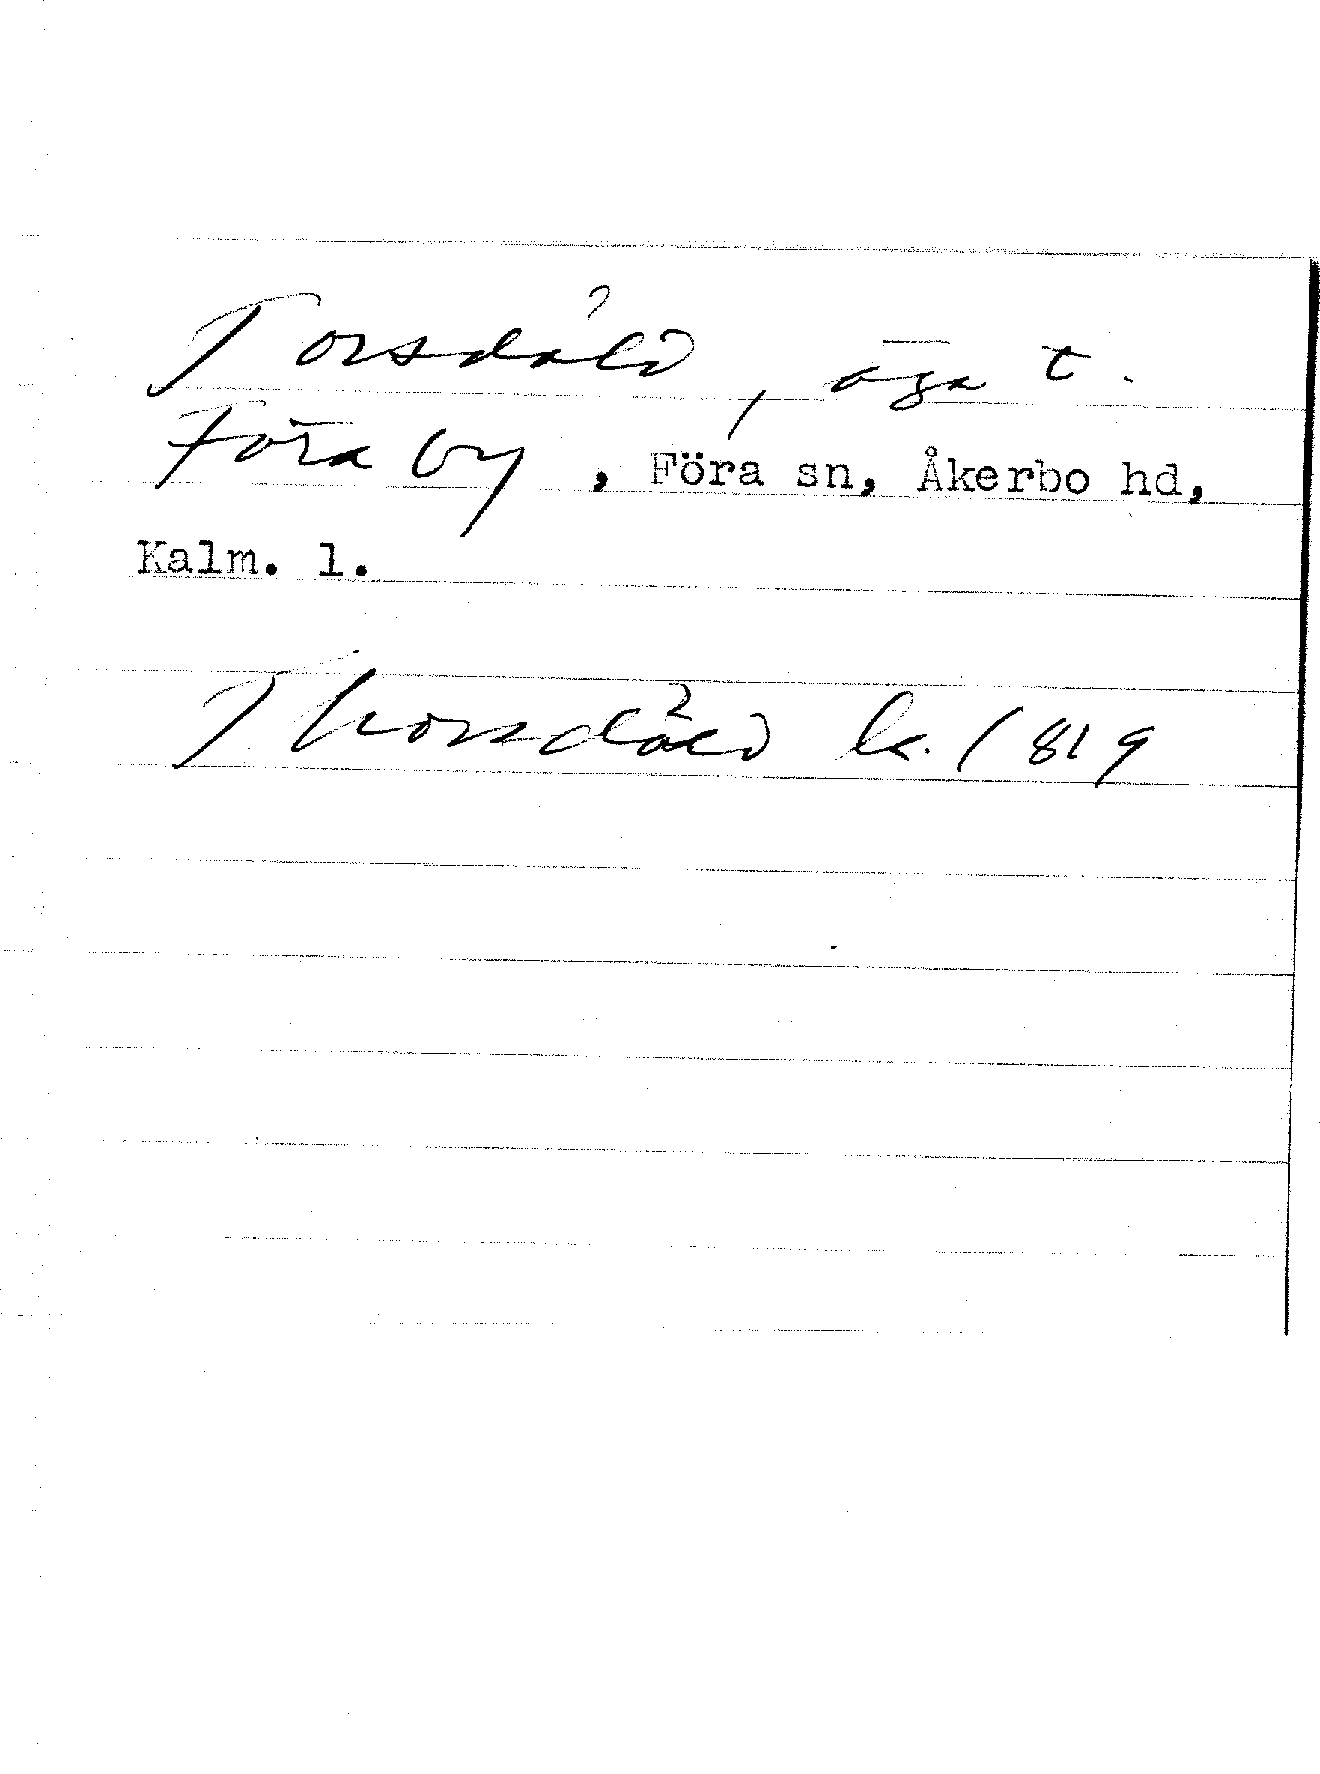 Torsdåld, äga t.
Föra by, Föra sn, Åkerbo hd,
Kalm. l.
Thorsdåld la. 1819